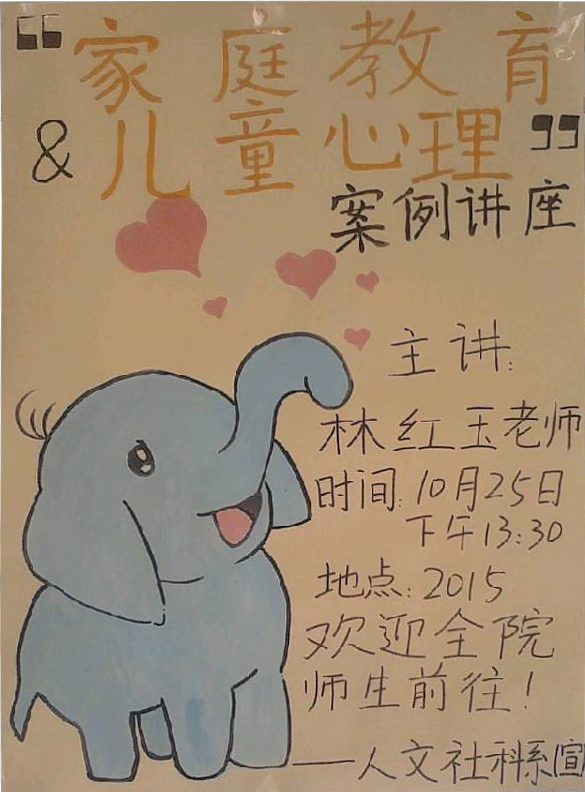 “家庭教育
&儿童心理”
案例讲座
主讲:
林红玉老师
时间:10月25日
下午13:30
地点:2015
欢迎全院
师生前往!
——人文社科系宣